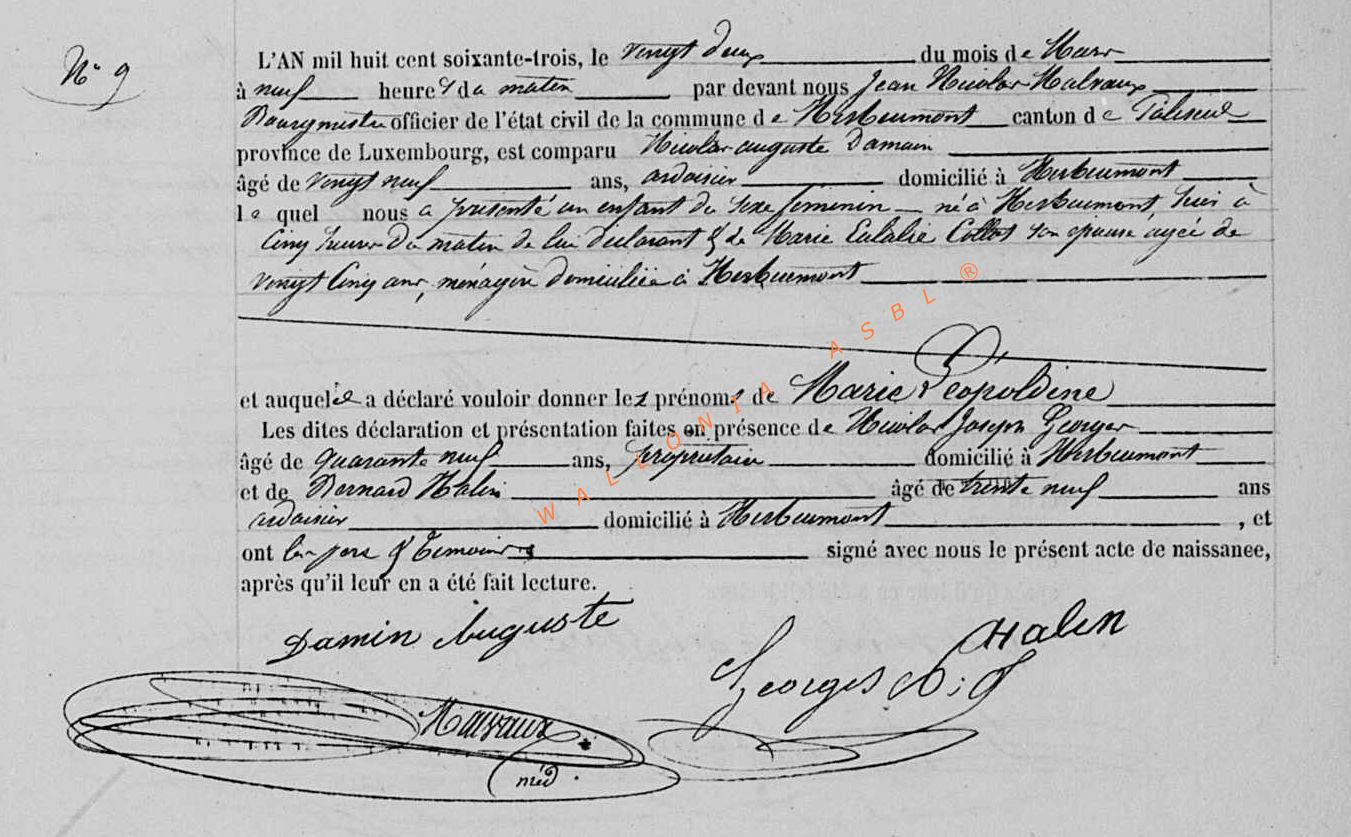 N° 9
L'AN mil huit cent soixante-trois, le vingt deux du mois de Mars
à neuf heures du matin par devant nous Jean Nicolas Malvaux
Bourgmestre officier de l'état civil de la commune de Herbeumont canton de Paliseul
province de Luxembourg, est comparu Nicolas auguste Damain
âgé de vingt neuf ans, ardoisier domicilié à Herbeumont
le quel nous a présenté un enfant du sexe feminin né à Herbeumont, hier à
Cinq heures du matin de lui déclarant & de Marie Eulalie Collot son épouse agée de
vingt Cinq ans, ménagère domiciliée à Herbeumont
et auquel il a déclaré vouloir donner les prénoms de Marie Léopoldine
Les dites déclaration et présentation faites en présence de Nicolas Joseph Georges
âgé de quarante neuf ans, propriétaire domicilié à Herbeumont
et de Bernard Halin âgé de trente neuf ans
ardoisier domicilié à Herbeumont , et
ont les père & Temoins signé avec nous le présent acte de naissance,
après qu'il leur en a été fait lecture.
Damin Auguste
Halin
Georges N: J
Malvaux
méd.
WALLONIA ASBL ®